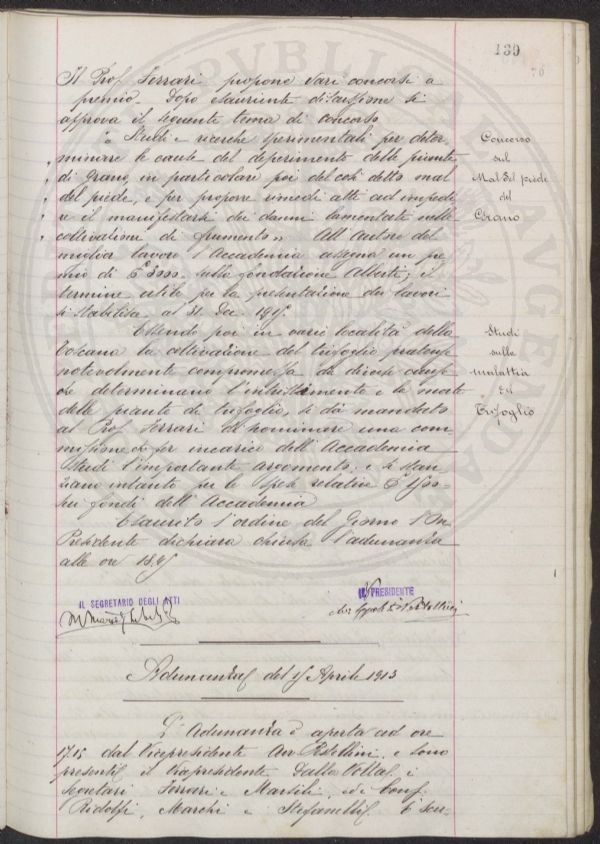 139
76
Il Prof. Ferrari propone vari concorsi a
premio. Dopo esauriente discussione si
approva il seguente tema di concorso
"Studi e ricerche sperimentali per deter
minare le cause del deperimento delle piante
di grano, in particolare poi del così detto mal
del piede, e per proporre rimedi atti ad impedi
re il manifestarsi dei danni lamentati nelle
coltivazioni di frumento" All'autore del
miglior lavoro l'Accademia assegna un pre
mio di sulla fondazione Alberti; il
termine utile per la presentazione dei lavori
si stabilisce al 31 Dic.
Concorso
sul
Mal del piede
del
Grano
Essendo poi in varie località della
Toscana la coltivazione del trifoglio pratense
notevolmente compromessa da diverse cause
che determinano l'intristimento e la morte
delle piante di trifoglio, si dà mandato
al Prof. Ferrari di nominare una com
missione che per incarico dell'Accademia
studi l'importante argomento; e si stan
ziano intanto per le spese relative
sui fondi dell'Accademia
Studi
sulla
malattia
del
Trifoglio
Esaurito l'ordine del Giorno
Presidente dichiara chiusa l'adunanza
alle ore
IL SEGRETARIO DEGLI ATTI
IL PRESIDENTE
Adunanza del Aprile 1913
L'Adunanza è aperta ad ore
17.15 dal Vicepresidente Avv Pestellini, e sono
presenti il Vicepresidente Dalla Volta, i
Segretari Ferrari e Marsili, ed i Consri
Ridolfi, Marchi e Stefanelli.